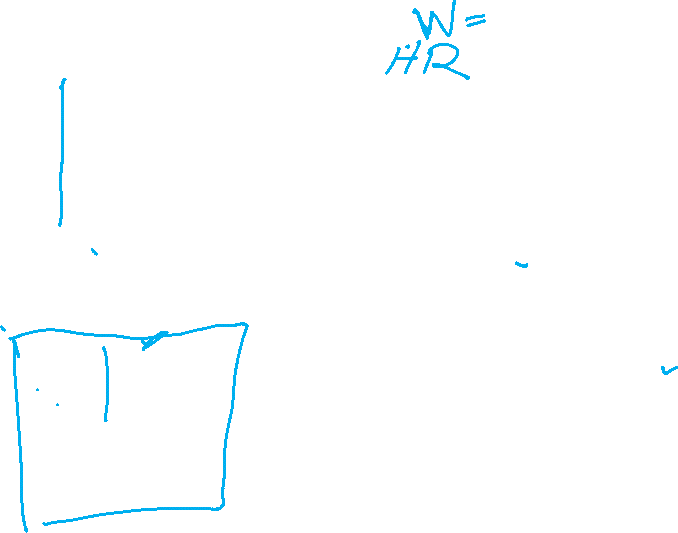 W=
HR